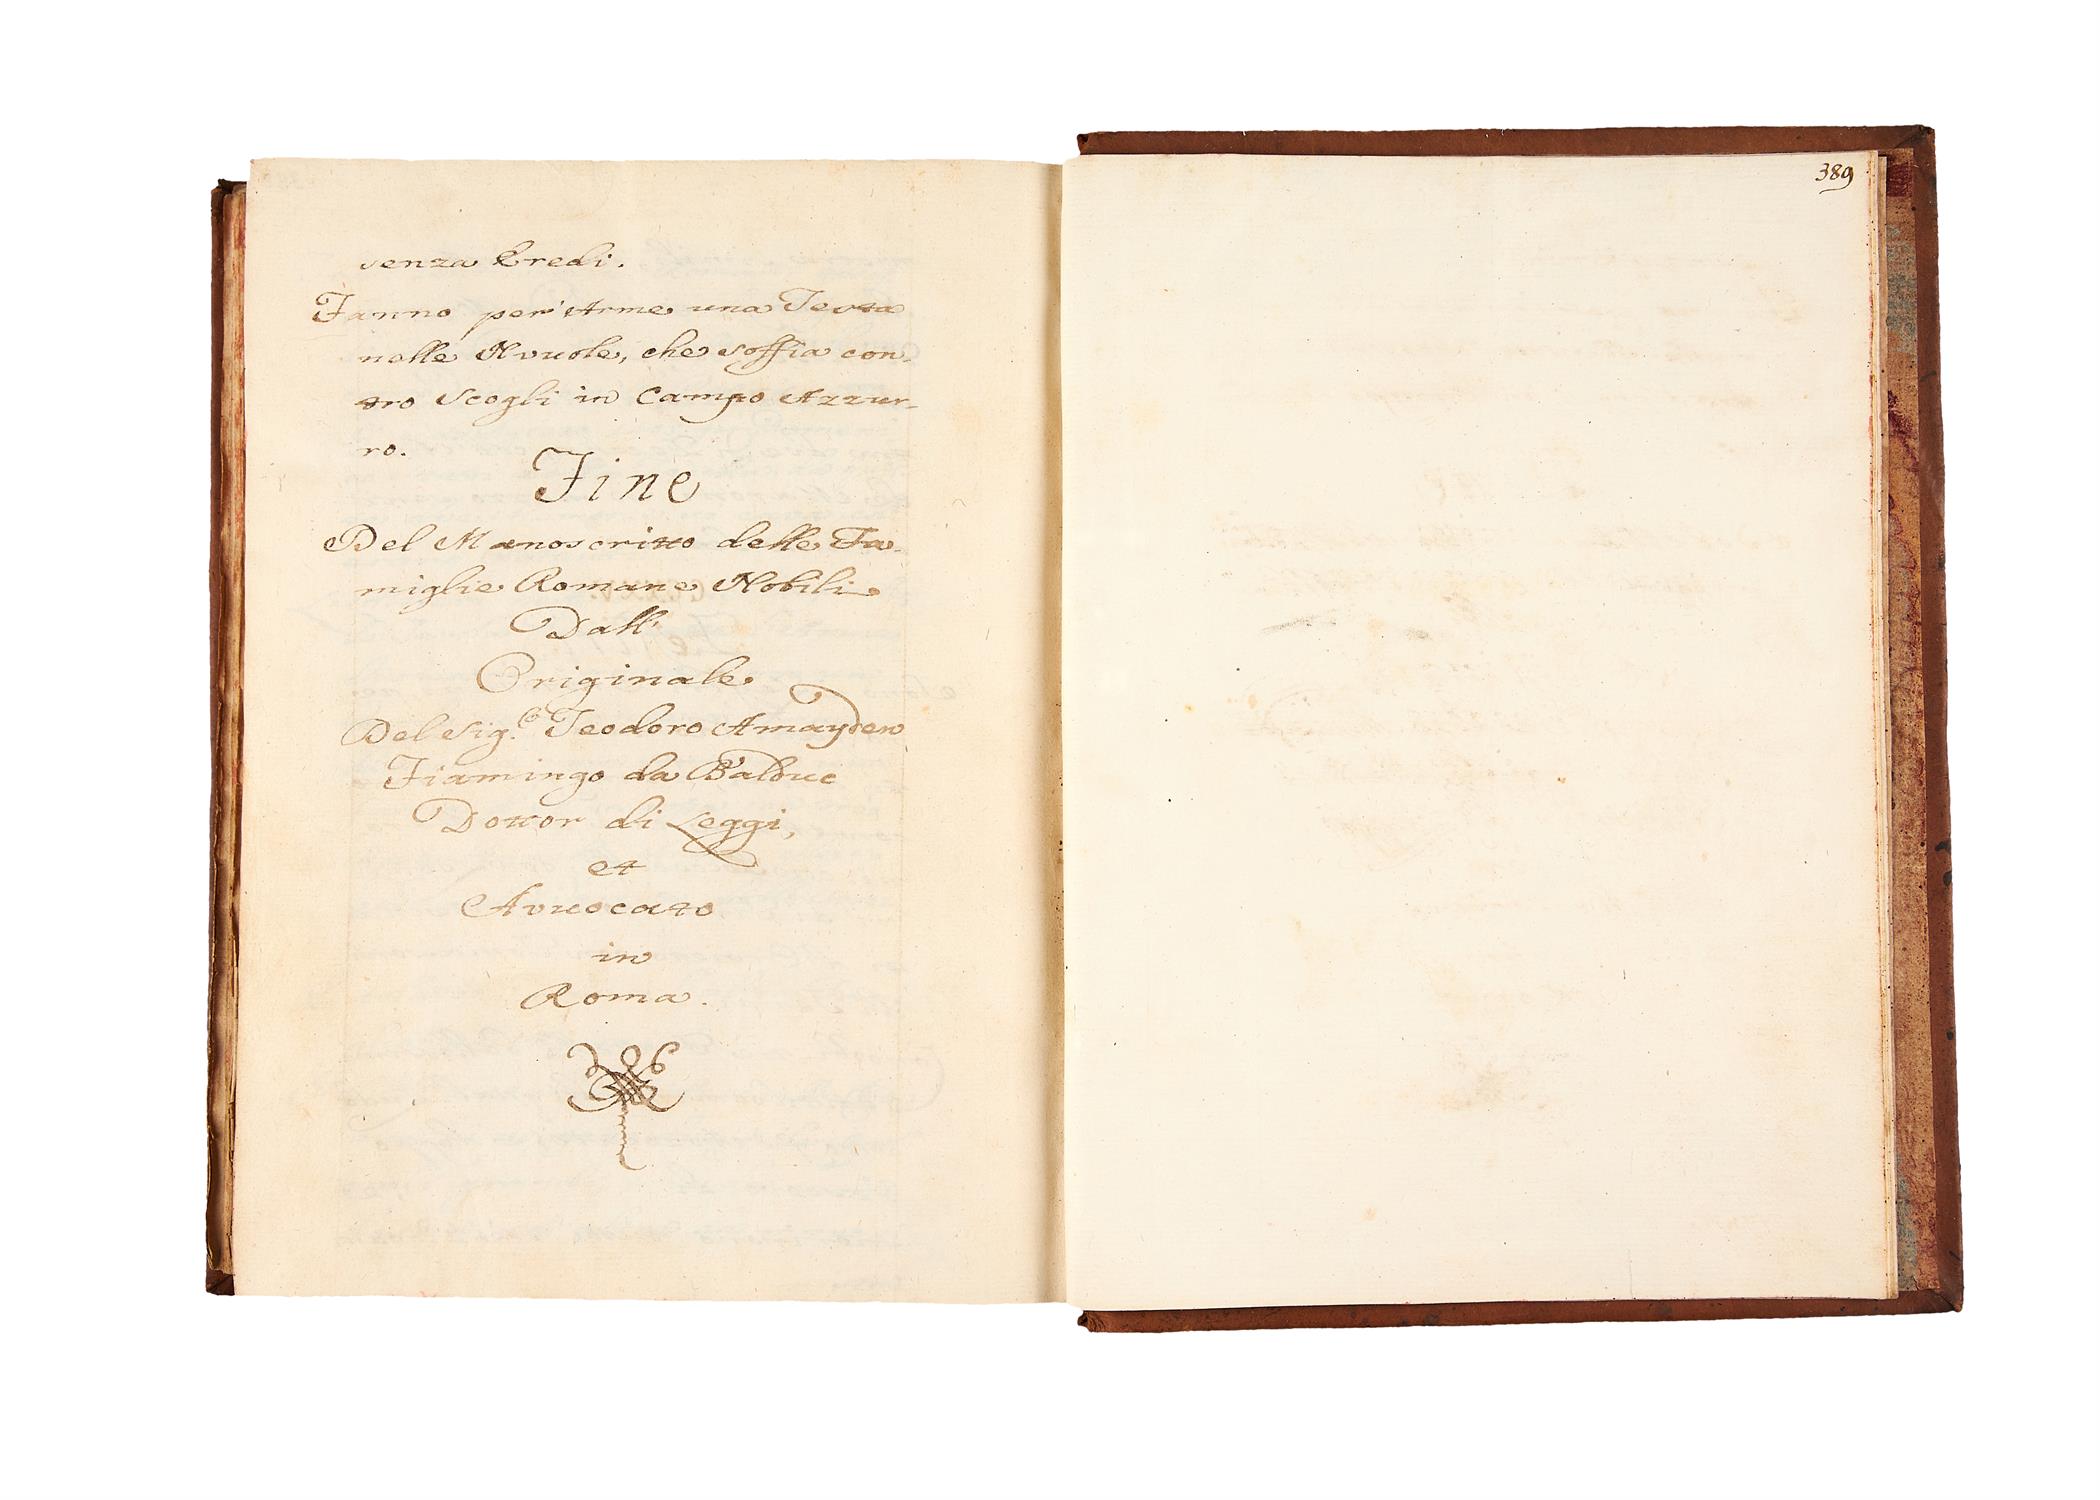 senza Eredi.
Fanno per Arme una Testa
nelle Nvuole, che soffia con-
tro Scogli in Campo Azzur-
ro.
Fine
Del Manoscritto delle Fa-
miglie Romane Nobili
Dall'
Originale
Del Sig.e Teodoro Amayden
Fiamingo da Balduc
Dottor di Leggi,
et
Avuocato
in
Roma.
389